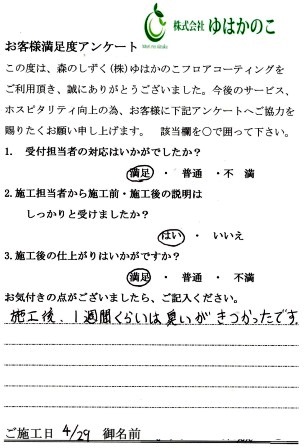 株式会社 ゆはかのこ
お客様満足度アンケート
この度は、森のしずく(株)ゆはかのこフロアコーティングを
ご利用頂き、誠にありがとうございました。今後のサービス、
ホスピタリティ向上の為、お客様に下記アンケートへご協力を
賜りたくお願い申し上げます。 該当欄を○で囲って下さい。
1. 受付担当者の対応はいかがでしたか?
満足 ・ 普通 ・ 不 満
2.施工担当者から施工前・施工後の説明は
しっかりと受けましたか?
はい ・ いいえ
3.施工後の仕上がりはいかがですか?
満足 ・ 普通 ・ 不満
お気付きの点がございましたら、ご記入ください。
施工後、1週間くらいは臭いがきつかったです。
ご施工日 4/29 御名前